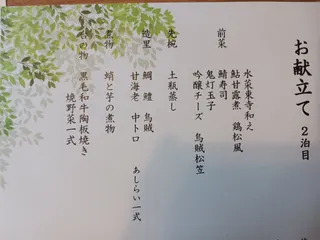 お献立て 2泊目
前菜
水菜東寺和え
鮎甘露煮 鶏松風
鯖寿司
鬼灯玉子
吟醸チーズ 烏賊松笠
先椀
土瓶蒸し
造里
鯛 鱧 烏賊
甘海老 中トロ
あしらい一式
煮物
蛸と芋の煮物
の物
黒毛和牛陶板焼き
焼野菜一式